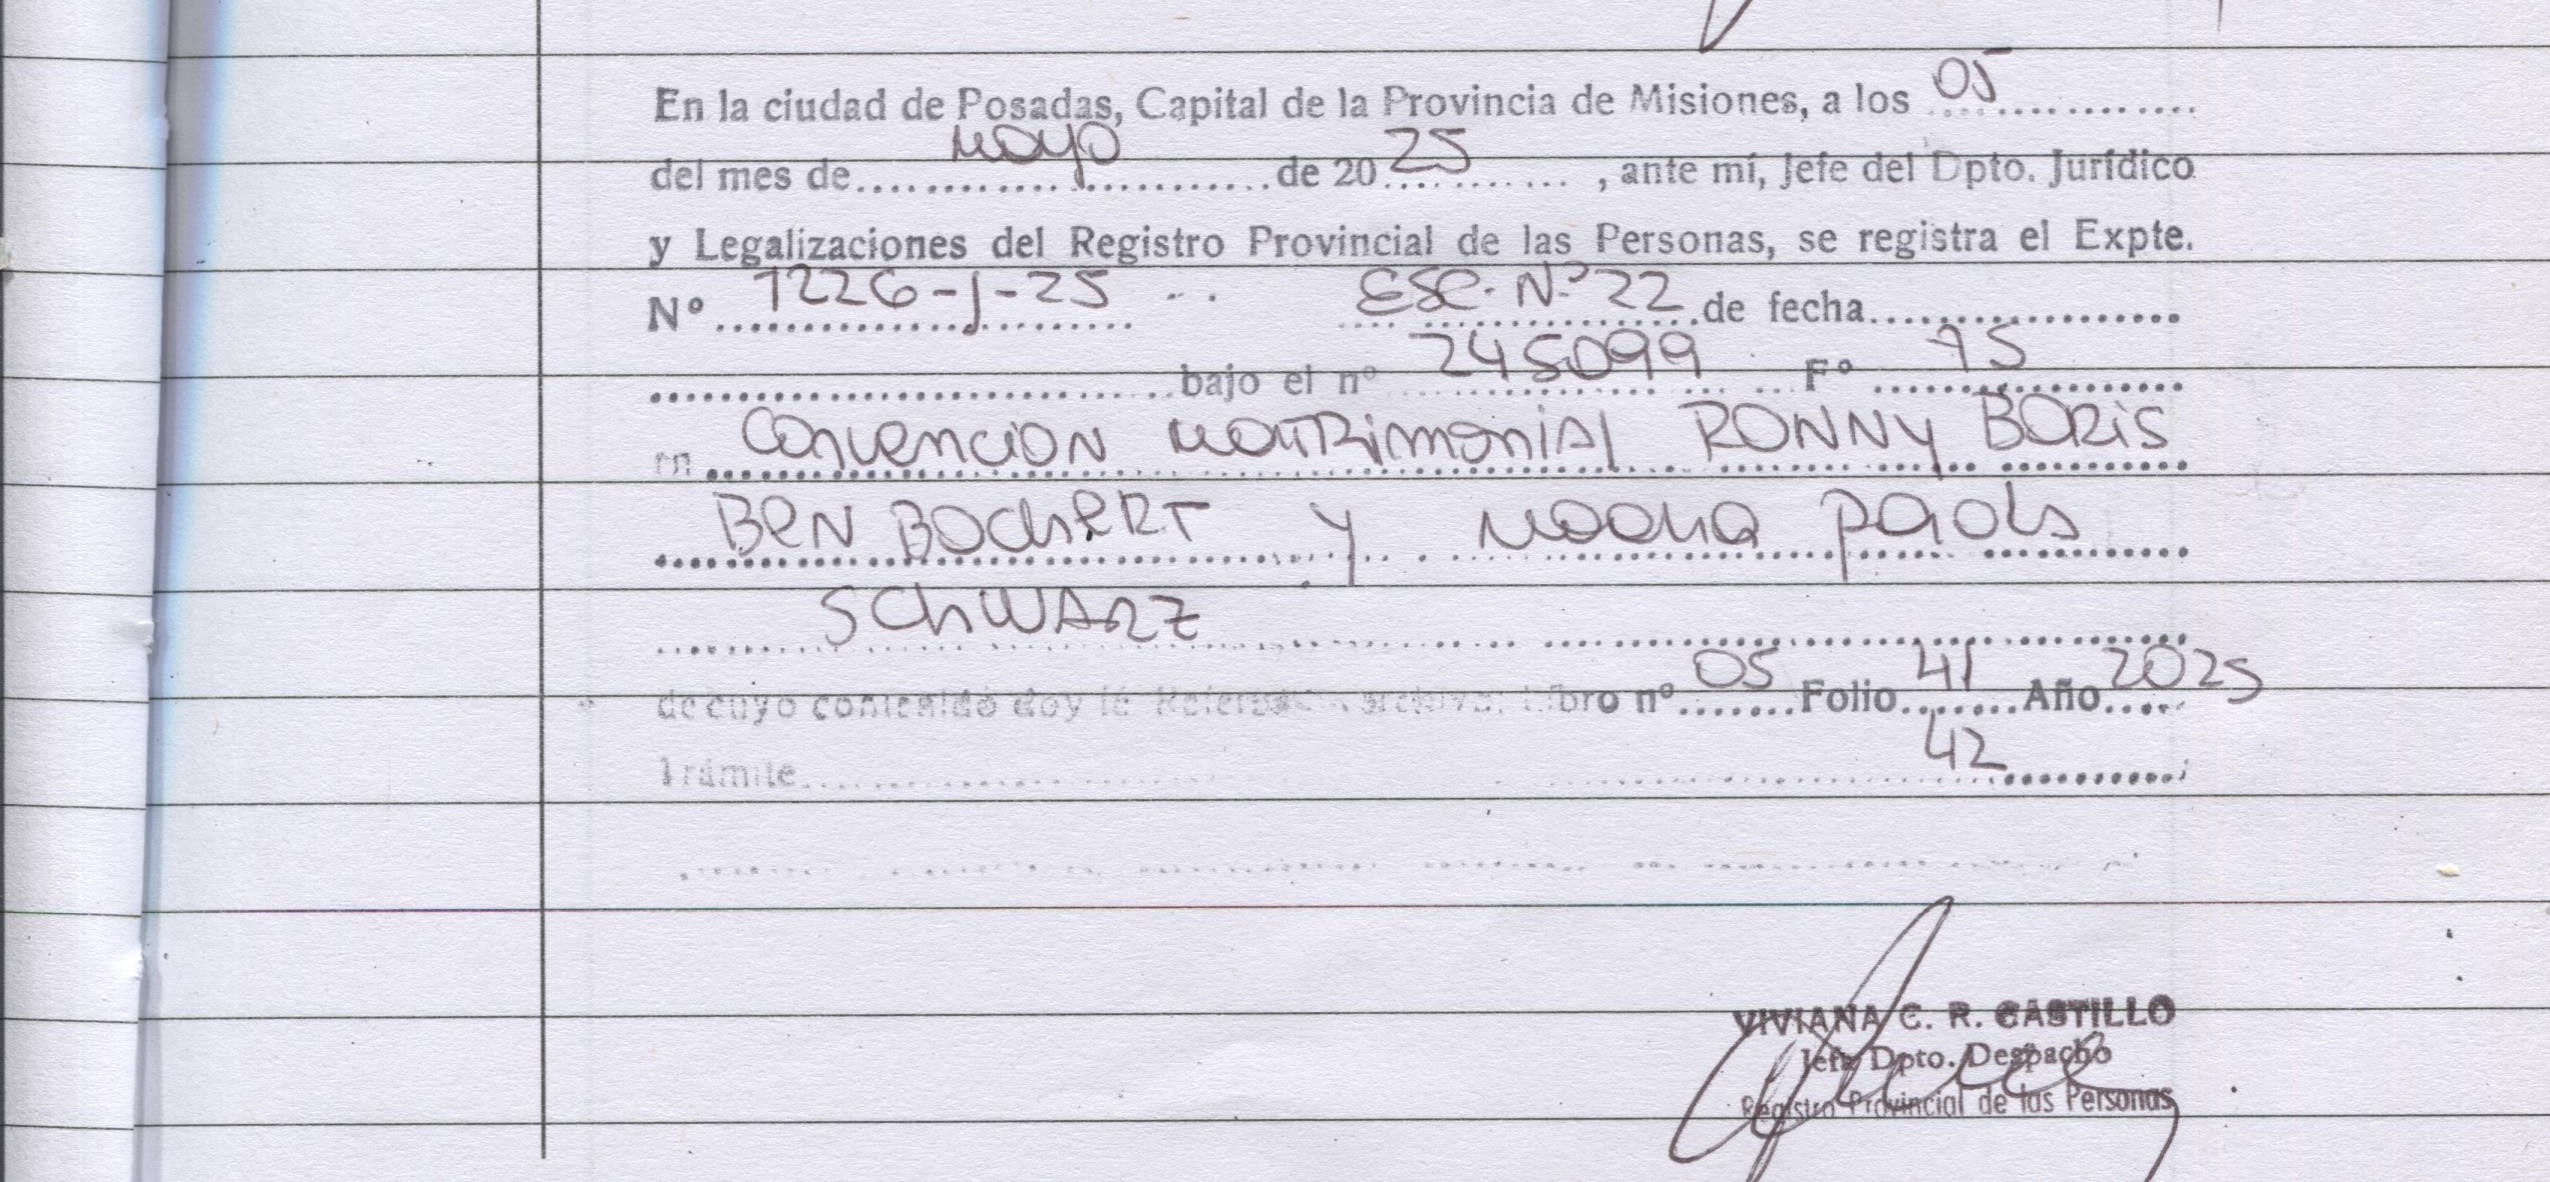 En la ciudad de Posadas, Capital de la Provincia de Misiones, a los 05
del mes de mayo de 20 25, ante mí, Jefe del Dpto. Jurídico
y Legalizaciones del Registro Provincial de las Personas, se registra el Expte.
Nº 1226-J-25 ESC. Nº 22 de fecha
bajo el nº 245099 Fº 15
en Convencion matrimonial RONNY BORIS
BEN BOCHERT y Paola
SCHWARZ
de cuyo contenido doy fé archivo: Libro nº 05 Folio 41 Año 2025
Trámite 42
VIVIANA C. R. CASTILLO
Jefa Dpto. Despacho
Registro Provincial de las Personas